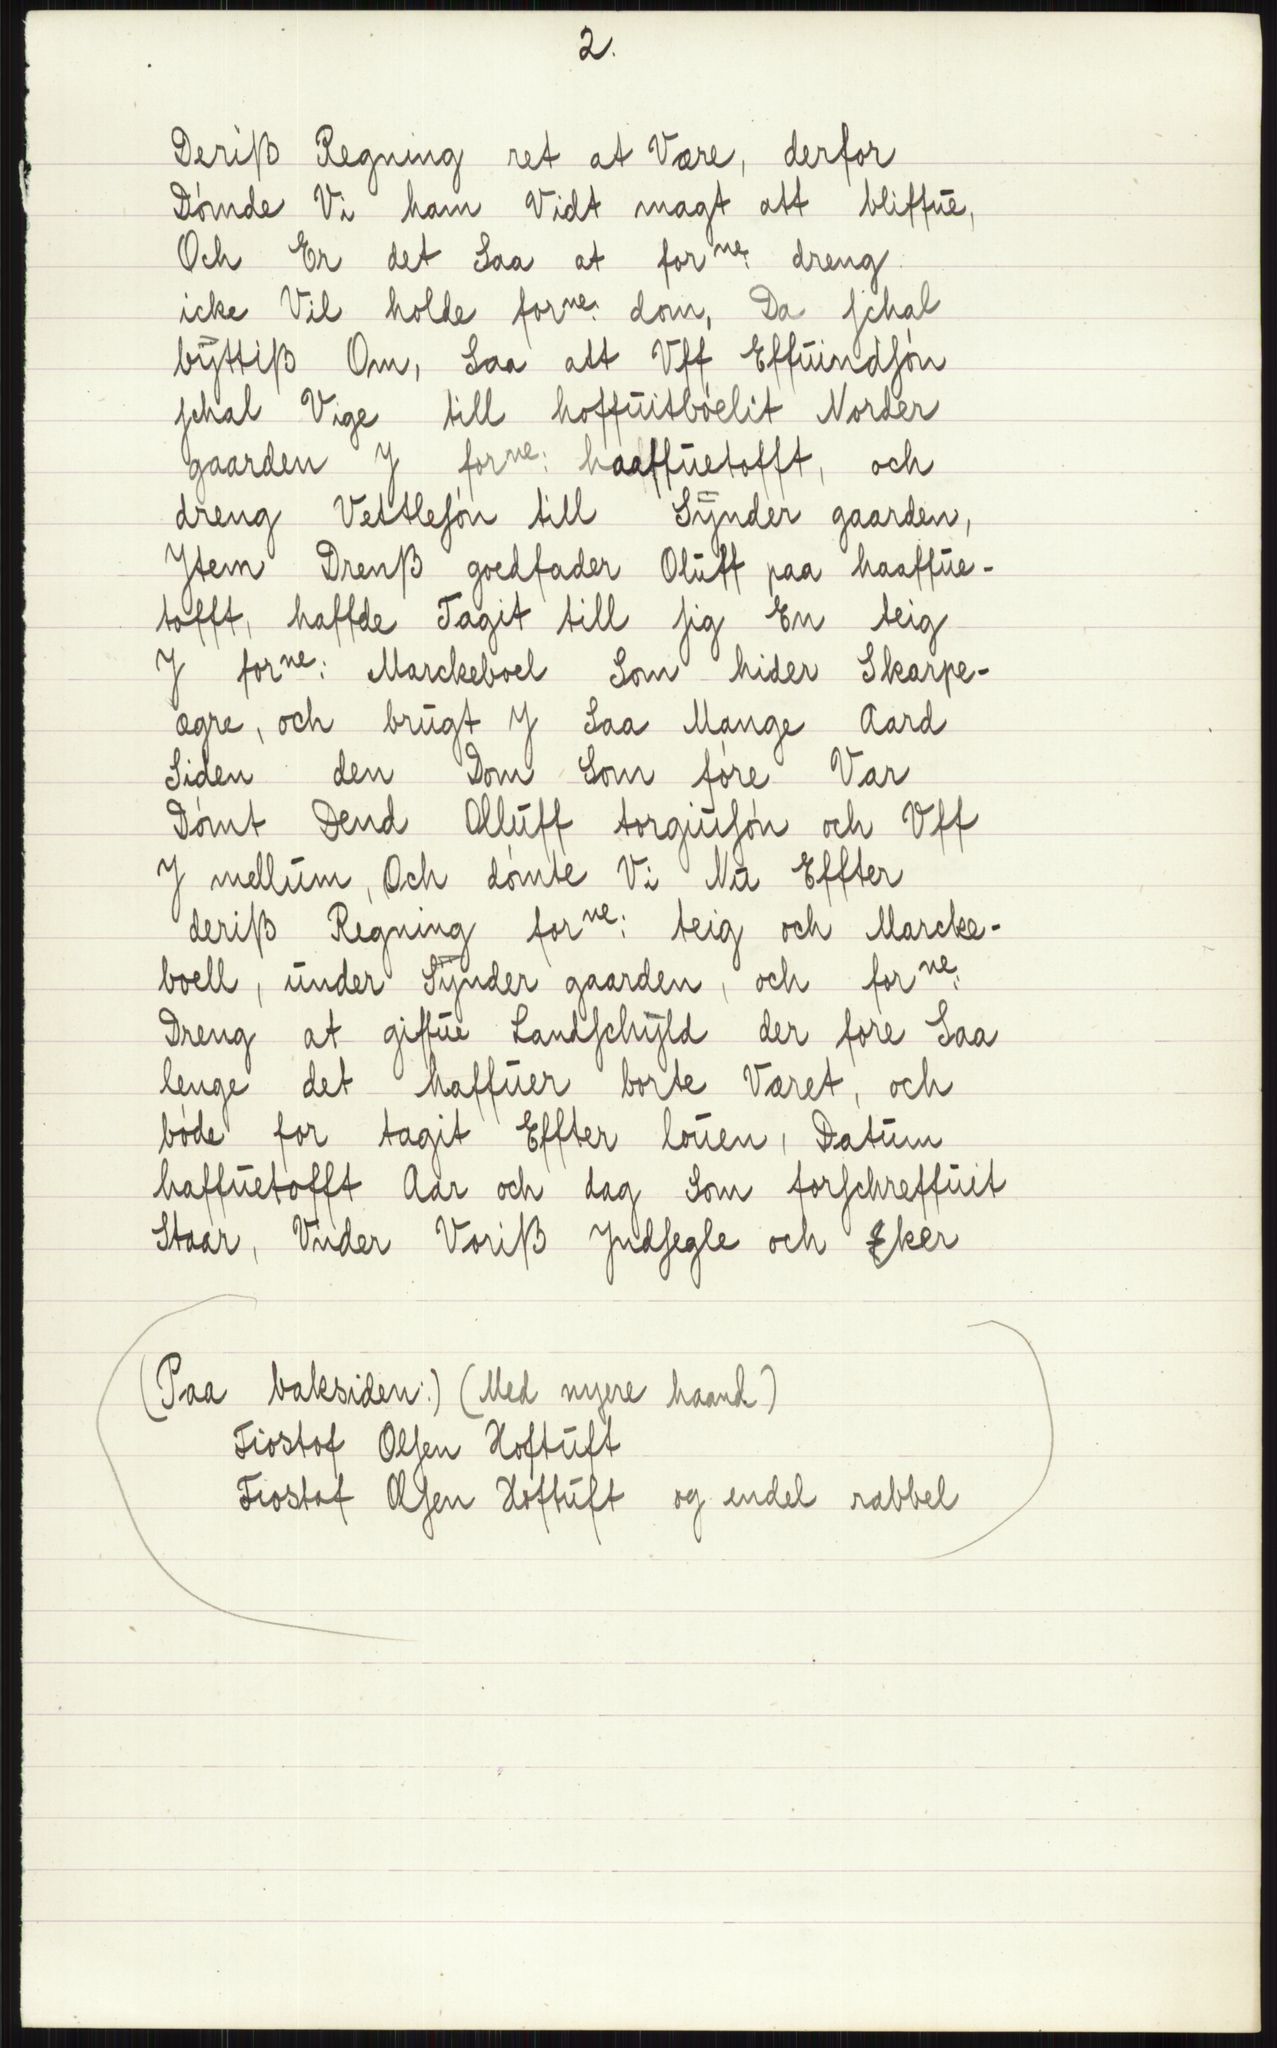 2.
Deriß Regning ret at Være, derfor
Dómde Vi ham Vidt magt att bliffue,
Och Er det Saa at forne: dreng
icke Vil holde forne: dom, Da schal
bÿttiß Om, Saa att Vff Effuindsón
schal Vige till hoffuitbóelit Norder
gaarden J forne: haaffuetofft, och
dreng Vettlesón till Sÿnder gaarden,
Jtem Drenß goedfader Oluff paa haaffue-
tofft, haffde Tagit till sig En teig
J forne: Marckeboel Som hider Skarpe-
ægre, och brugt J Saa Mange Aard
Siden den Dom Som fóre Var
Dómt Dend Olluff torgiusón och Vff
J mellum, Och dómte Vi Nu Effter
deriß Regning forne: teig och Marcke-
boell, under Sÿnder gaarden, och forne:
Dreng at giffue Landschÿld der fore Saa
lenge det haffuer borte Været, och
bóde for tagit Effter louen, Datum
haffuetofft Aar och dag Som forschreffuit
Staar, Vnder Voriß Jndsegle och Eker
(Paa baksiden:) (Med nyere haand)
Tiostof Olsen Hoftuft
Tiostof Olsen Hóftuft og endel rabbel